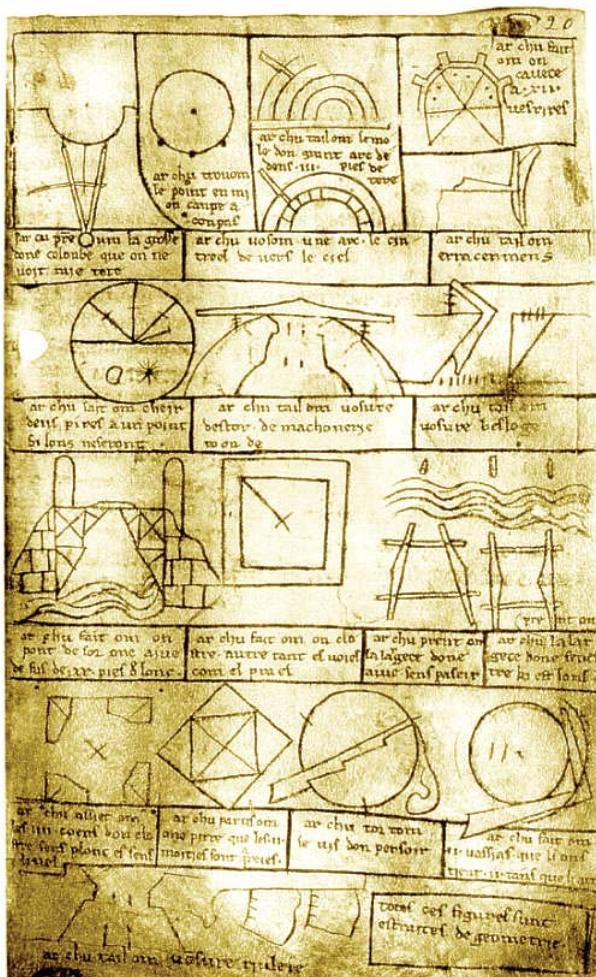 20
ar chu fait
om on
cavece
a . xii .
vesrires
ar chu tail om le mo
le don grant arc de
dens . iii . pies de
tere
ar chu trouom
le point en mi
on canpe a
conpas
par cu prent om la grosse
done colonbe que on ne
voit mie tote
ar chu vosom . une arc . le cin
treel de vers le ciel
ar chu tail om
erracemens
ar chu fait om cheir
deus pires a un point
si lons ne seront
ar chu tail om vosure
destor . de machonerie
roonde
ar chu tail om
vosure besloge
ar chu fait om on
pont desor one aive
de fus de . xx . pies d lonc .
ar chu fait om on clo
stre . autre tant es voies
com el prael
ar chu prent om
la largece done
aive sens paseir
ar chu la lar
gece done fenes
tre ki est lons
ar chu assiet om
les . iiii . coens don clo
stre sens plonc et sens
livel
ar chu partis om
one pirre que les . ii .
moities sont
ar chu tor tom
le vis don persoir
ar chu fait om
. ii . vassias que li ons
tient . ii . tans que li
ar chu tail om vosure
totes ces figures sunt
estraites de geometrie .